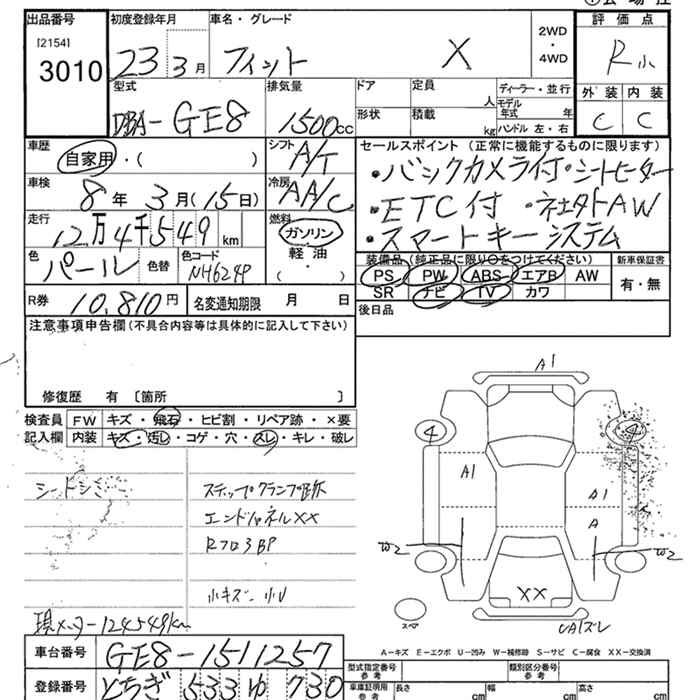 出品番号
[2154]
3010
初度登録年月
23 3月
車名・グレード
フィット X
2WD
・
4WD
評価点
R小
外装 内装
C C
型式
DBA-GE8
排気量
1500cc
ドア
形状
定員
人
積載
kg
ディーラー・並行
モデル年式 年
ハンドル 左・右
車歴
自家用・( )
シフト
A/T
車検
8年3月(15日)
冷房
AA/C
走行
12万4千549km
燃料
ガソリン
軽油
( )
色
パール
色替
色コード
NH624P
セールスポイント (正常に機能するものに限ります)
・バックカメラ付・シートヒーター
・ETC付 ・社外AW
・スマートキーシステム
装備品(純正品に限り○をつけてください)
PS PW ABS エアB AW
SR ナビ TV カワ
新車保証書
有・無
後日品
R券 10,810円
名変通知期限 月 日
注意事項申告欄(不具合内容等は具体的に記入して下さい)
修復歴 有 〔箇所 〕
検査員 FW キズ・飛石・ヒビ割・リペア跡・×要
記入欄 内装 キズ・汚レ・コゲ・穴・スレ・キレ・破レ
シートシミ
ステップクランプ跡
エンドパネルXX
Rフロ3BP
小キズ 小U
現メーター124549km
A1
4
4
A1
A1
A
W2
W2
XX
UA1ズレ
スペア
A-キズ E-エクボ U-凹み W-補修跡 S-サビ C-腐食 XX-交換済
車台番号 GE8-1511257
登録番号 とちぎ 533 ゆ 730
型式指定番号
参考
類別区分番号
参考
車庫証明用
参考
長さ cm
幅 cm
高さ cm